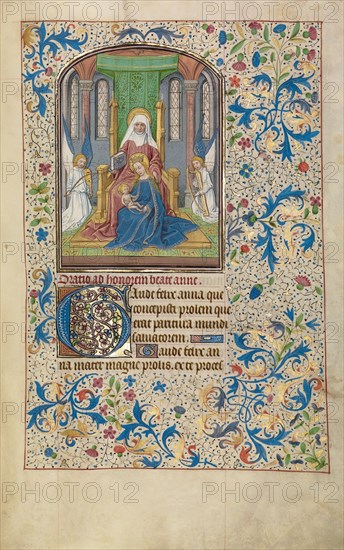 Oratio ad honorem beate anne.
Gaude felix anna que
concepisti prolem que
erat paritura mundi
saluatorem.
Gaude felix an
na mater magne prolis. ex te proce
PHOTO 12 PHOTO 12 PHOTO 12